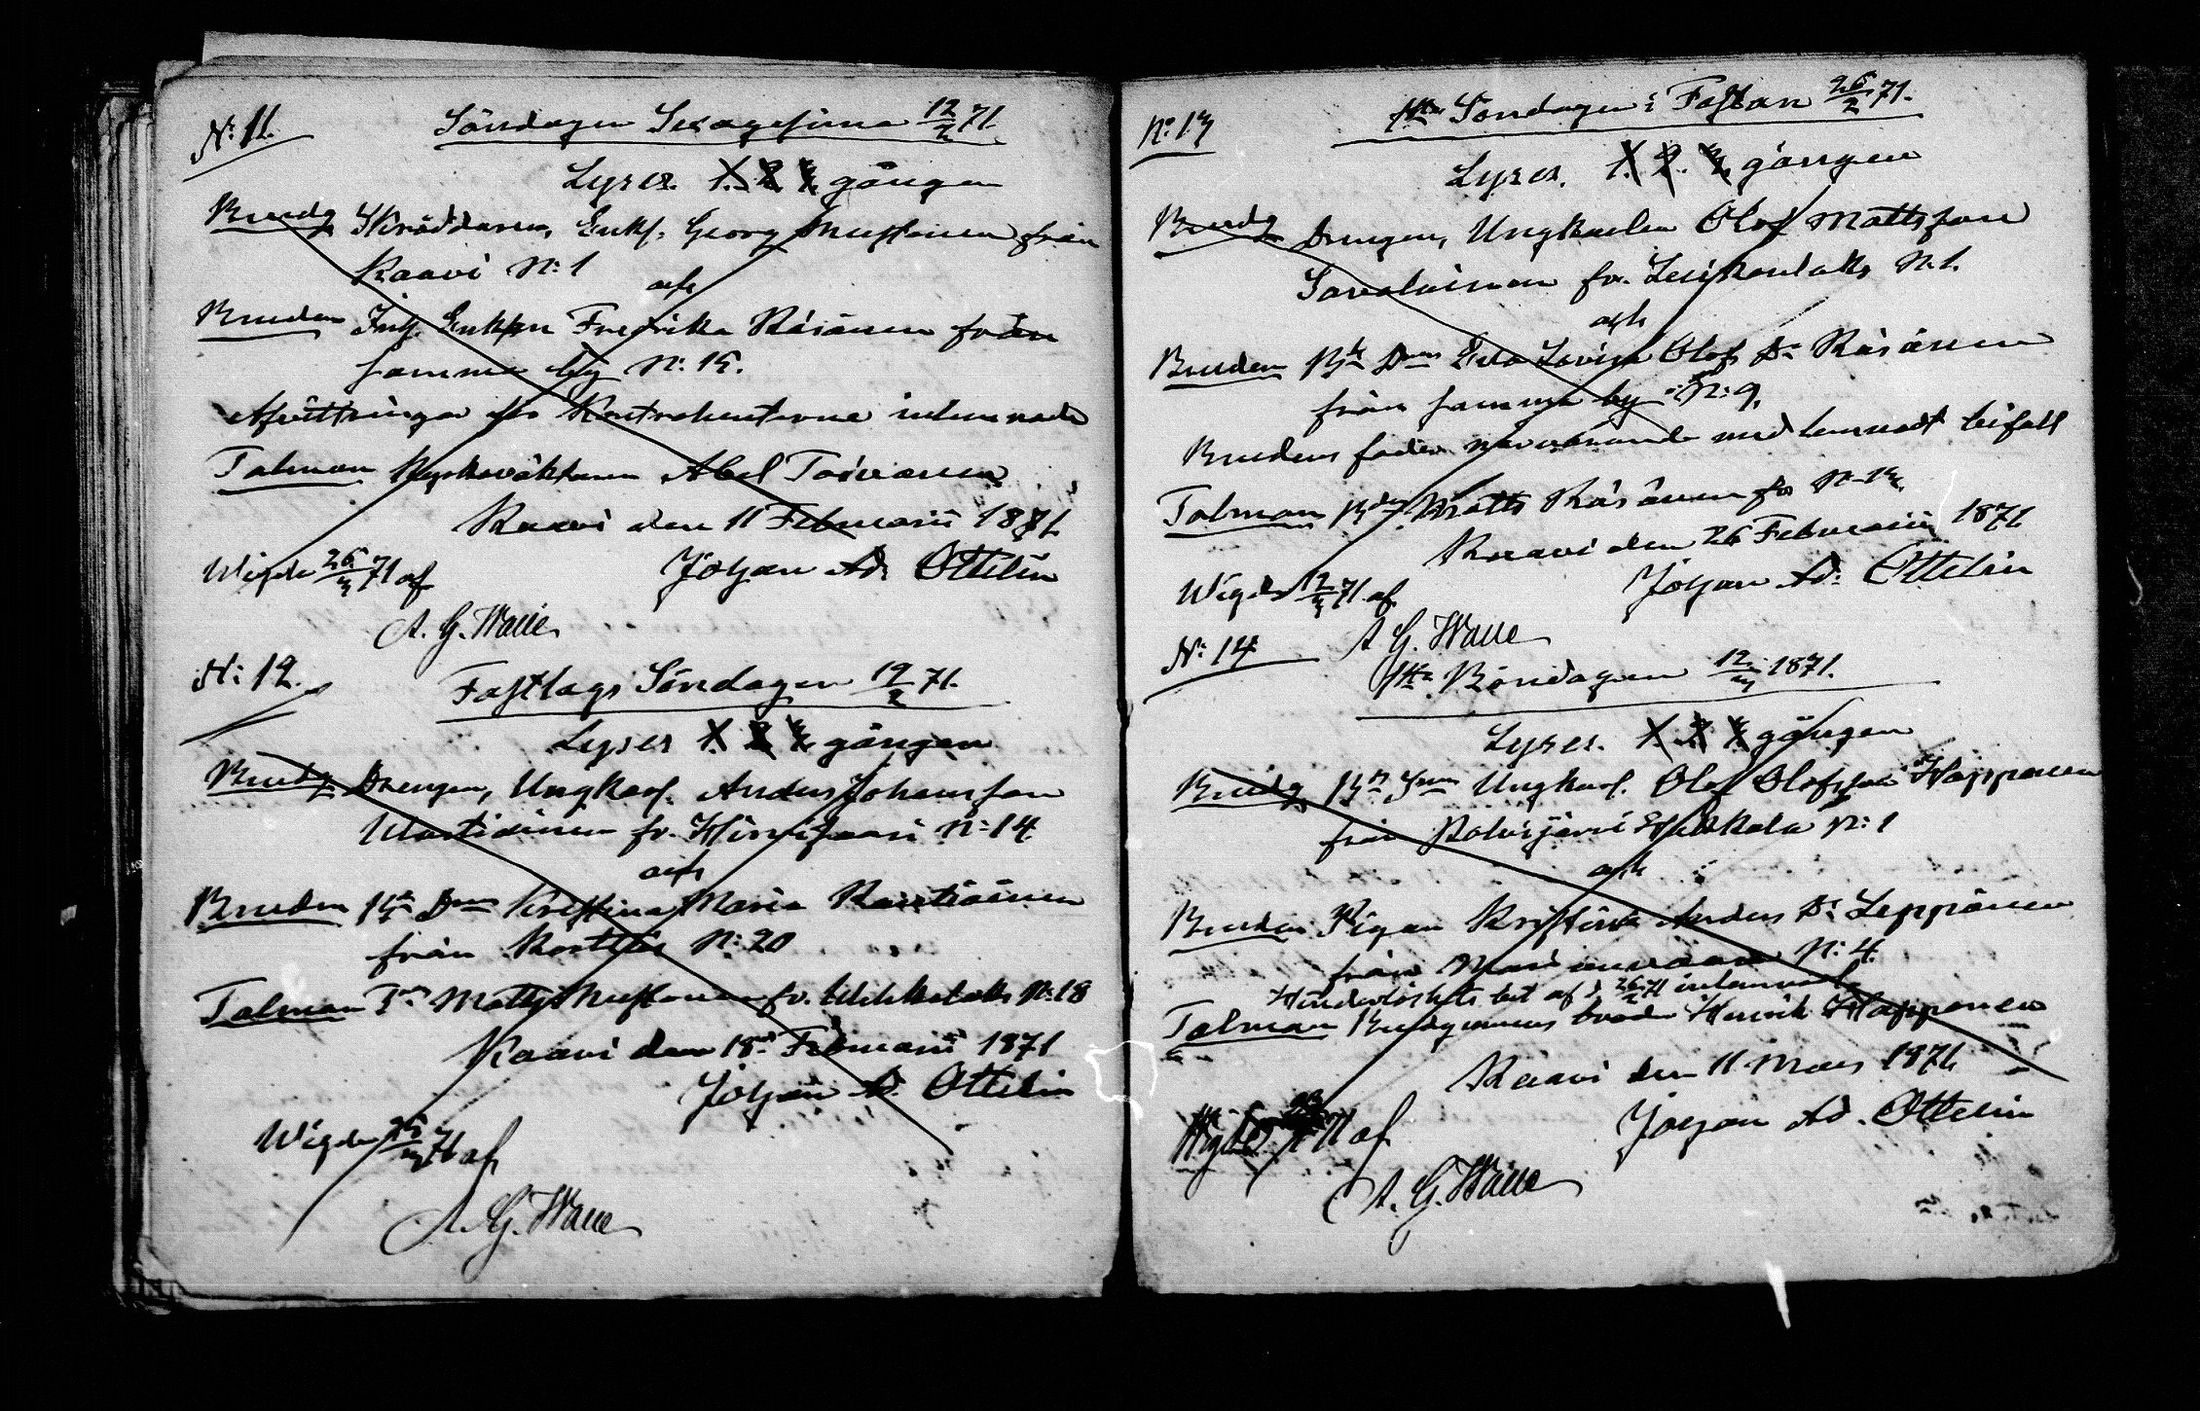 N:11. Söndagen Sexagesima 12/2 71.
Lyses 1. 2 3 gången
Brudg Skräddaren, Enkl. Georg Mustonen från
Kaavi N:1
och
Bruden Inh. Enkan Fredrika Räsänen från
samma by N: 15.
Afvittringar för Kontrahenterne inlemnade
Talman Kyrkoväktaren Abel Toivanen
Kaavi den 11 Februarii 1871
Wigde 26/3 71 af Johan Ad: Ottelin
A. G. Walle
N: 12. Fastlags Söndagen 19/2 71.
Lyses 1. 2 3 gången
Brudg Drengen, Ungkarl. Anders Johansson
fr. N:14
och
Bruden Bde Dnn Kristina Maria Rautiainen
från N:20
Talman Matts Mustonen fr. N:18
Kaavi den 18 Februarii 1871
Johan A. Ottelin
Wigde 71 af
A. G. Walle
N:13 1sta Söndagen i Fastan 26/2 71.
Lyses. 1. 2. 3 gången
Brudg Drengen, Ungkarlen Olof Mattsson
Savolainen fr. N:1.
och
Bruden Bde Dnn Eva Lovisa Olofs Dr Räsänen
från samma by N:9.
Brudens fader närvarande med lemnadt bifall
Talman Bden Matts Räsänen fr N:13.
Kaavi den 26 Februarii 1871
Wigde 12/3 71 af Johan Ad: Ottelin
A G. Walle
N:14 1sta Böndagen 12/3 1871.
Lyses. 1. 2. 3 gången
Brudg Bde Snn Ungkarl. Olof Olofsson Happonen
från Polvijärvi N:1
och
Bruden Pigan Kristina Anders Dr Leppänen
från N:4.
Hinderlöshets bet af d 26/2 71 inlemnade
Talman Brudgummens broder Henrik Happonen
Kaavi den 11 Mars 1871
Johan Ad. Ottelin
Wigde 71 af
A. G. Walle